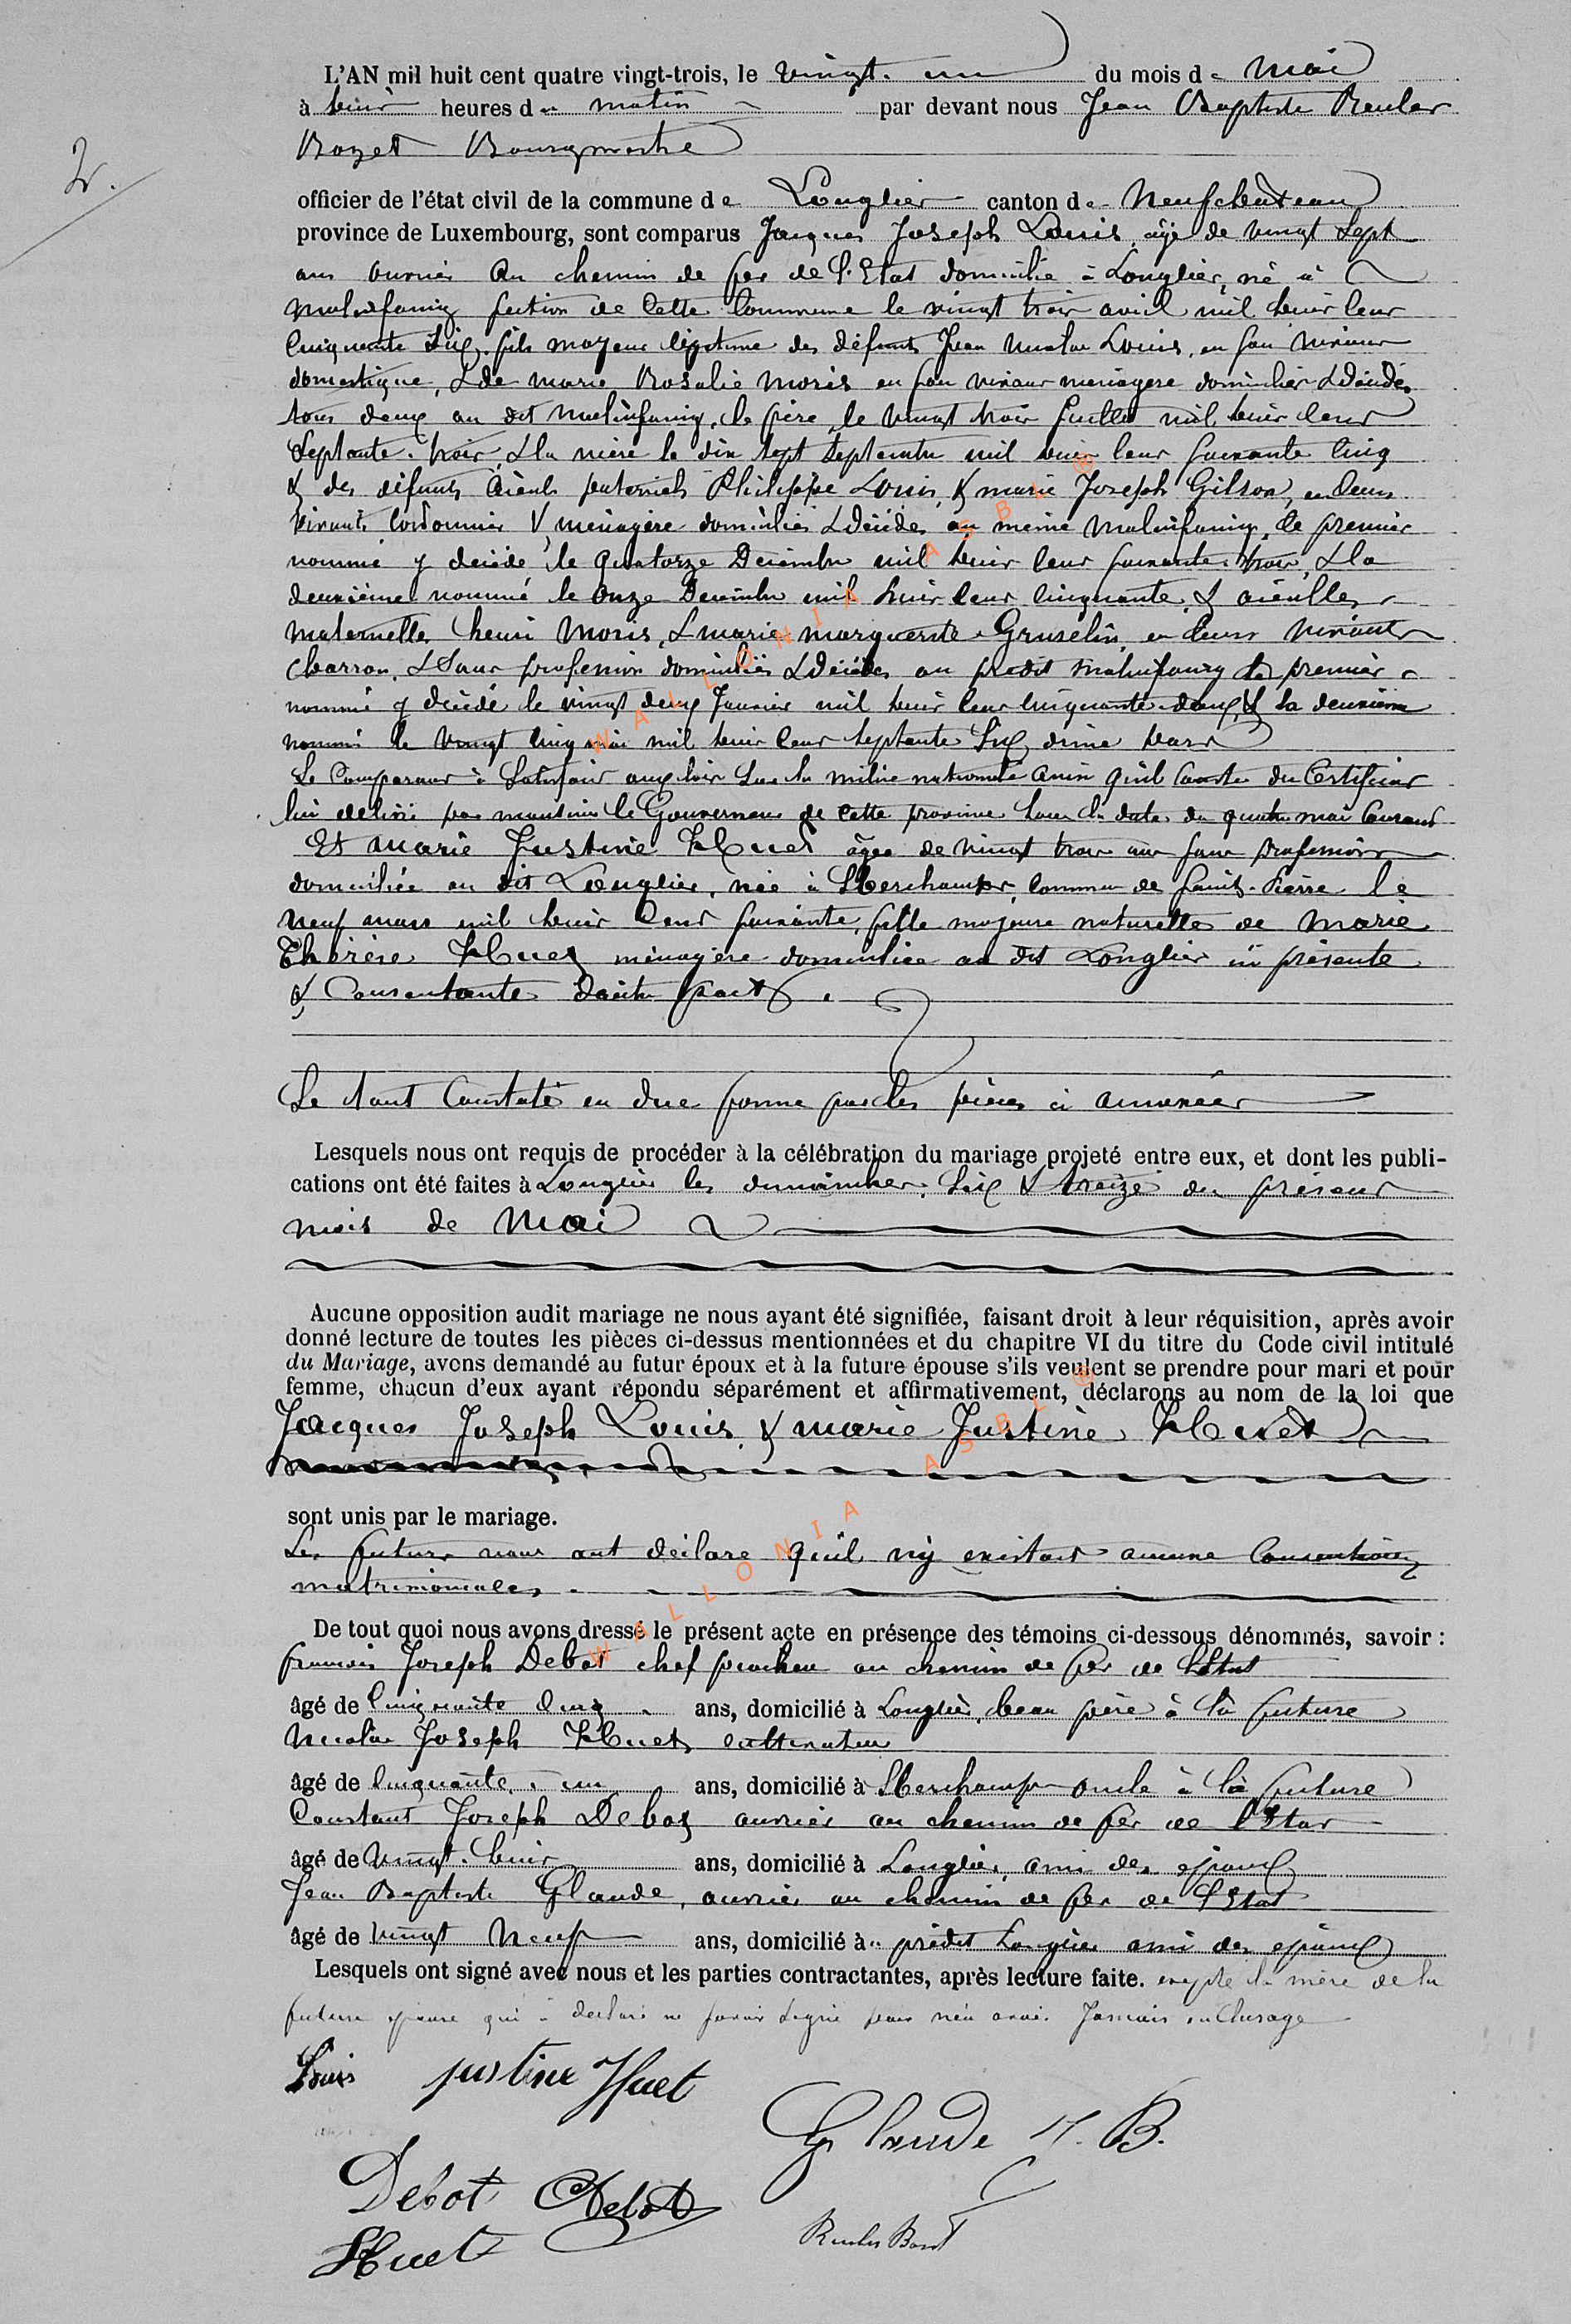 2.
L'AN mil huit cent quatre vingt-trois, le vingt-un du mois de Mai
à huit heures du matin par devant nous Jean Baptiste Reuler
Bozet Bourgmestre
officier de l'état civil de la commune de Longlier canton de Neufchâteau
province de Luxembourg, sont comparus Jacques Joseph Louis, âgé de vingt sept
ans ouvrier au chemin de fer de l'Etat domicilié à Longlier, né à
Malinfaing section de cette commune le vingt trois avril mil huit cent
cinquante six, fils majeur légitime des défunts Jean Nicolas Louis, en son vivant
domestique, & de Marie Rosalie Moris en son vivant ménagère domiciliés & décédés
tous deux au dit Malinfaing, le père le vingt trois juillet mil huit cent
septante-trois, & la mère le dix sept septembre mil huit cent soixante cinq
& des défunts aïeuls paternels Philippe Louis, & Marie Joseph Gilson, en leurs
vivants cordonnier & ménagère domiciliés & décédés au même Malinfaing, le premier
nommé y décédé le quatorze Décembre mil huit cent soixante-trois, & la
deuxième nommé le onze Décembre mil huit cent cinquante, & aïeulles
maternelles henri Moris, & Marie Marguerite Gruselin, en leurs vivants
charron, & sans profession domiciliés & décédés au prédit Malinfaing le premier
nommé y décédé le vingt deux Janvier mil huit cent cinquante-deux, & la deuxième
nommé le vingt cinq mai mil huit cent septante six d'une part
Le Comparant à satisfait aux lois sur la milice nationale ainsi qu'il conste du Certificat
lui délivré par monsieur le Gouverneur de cette province sous la date du quatre mai courant
Et Marie Justine Huet âgée de vingt trois ans sans profession
domiciliée au dit Longlier, née à Hberchamps, commune de Saint-Pierre le
neuf mars mil huit cent soixante, fille majeure naturelle de Marie
Thérèse Huet ménagère domiciliée au dit Longlier ici présente
& consentante d'autre part.
Le tout constaté en due forme par les pièces ci annexées
Lesquels nous ont requis de procéder à la célébration du mariage projeté entre eux, et dont les publi-
cations ont été faites à Longlier les dimanches, six & treize du présent
mois de Mai
Aucune opposition audit mariage ne nous ayant été signifiée, faisant droit à leur réquisition, après avoir
donné lecture de toutes les pièces ci-dessus mentionnées et du chapitre VI du titre du Code civil intitulé
du Mariage, avons demandé au futur époux et à la future épouse s'ils veulent se prendre pour mari et pour
femme, chacun d'eux ayant répondu séparément et affirmativement, déclarons au nom de la loi que
Jacques Joseph Louis & Marie Justine Huet
sont unis par le mariage.
Les futurs nous ont déclaré qu'il n'y existait aucune Conventions
matrimoniales.
De tout quoi nous avons dressé le présent acte en présence des témoins ci-dessous dénommés, savoir :
François Joseph Debot chef piocheur au chemin de fer de l'Etat
âgé de cinquante cinq ans, domicilié à Longlier, beau père à la future
Nicolas Joseph Huet, cultivateur
âgé de cinquante-un ans, domicilié à Hberchamps oncle à la future
Constant Joseph Debot ouvrier au chemin de fer de l'Etat
âgé de vingt-huit ans, domicilié à Longlier, ami des époux
Jean Baptiste Glaude, ouvrier au chemin de fer de l'Etat
âgé de vingt Neuf ans, domicilié à prédit Longlier ami des époux
Lesquels ont signé avec nous et les parties contractantes, après lecture faite. excepté la mère de la
future épouse qui a déclaré ne savoir signé pour n'en avoir Jamais eu l'usage
Louis Justine Huet
Glaude J. B.
Debot CDebot
Reuler Bozet
Huet
WALLONIA ASBL ®
WALLONIA ASBL ®